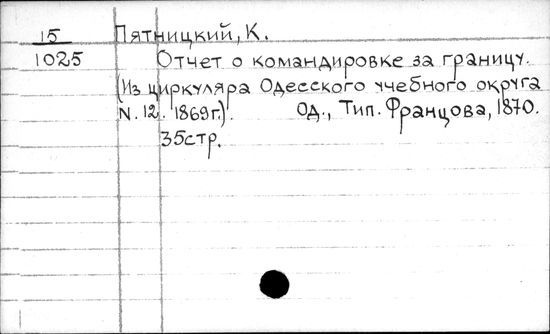 15 Пятницкий, К.
1025 Отчет о командировке за границу.
(Из циркуляра Одесского учебного округа
N. 12. 1869г.). Од., Тип. Францова, 1870.
35стр.